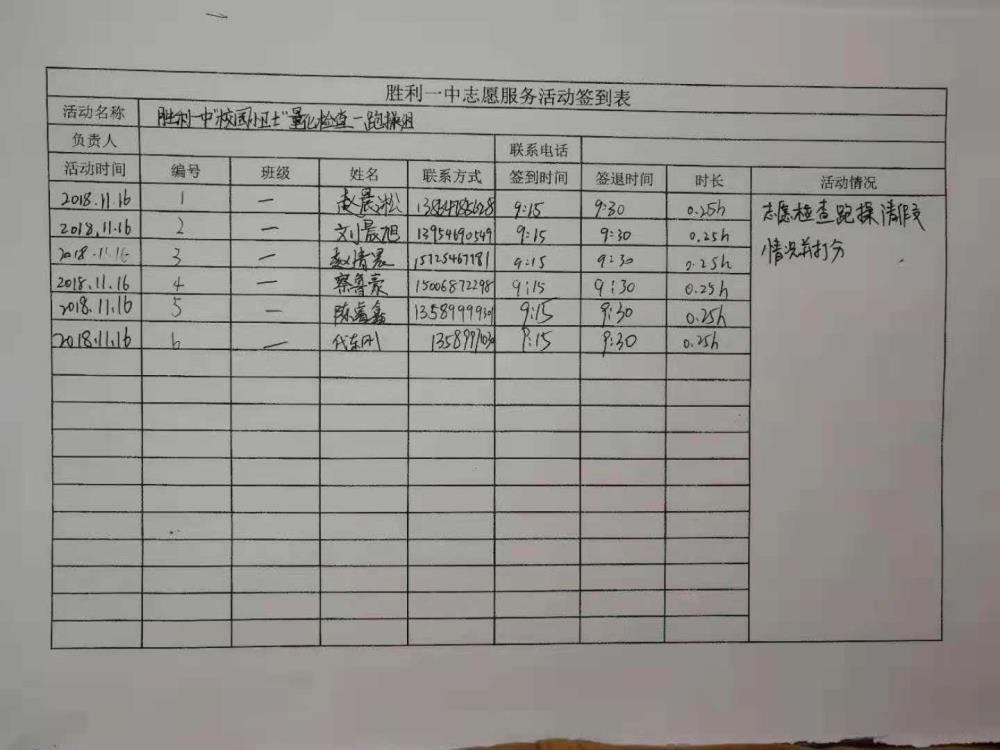 胜利一中志愿服务活动签到表
活动名称 胜利一中"校园小卫士"量化检查-跑操组
负责人 联系电话
活动时间 编号 班级 姓名 联系方式 签到时间 签退时间 时长 活动情况
2018.11.16 1 一 赵晨淞 9:15 9:30 0.25h 志愿检查跑操请假
2018.11.16 2 一 刘晨旭 13954690549 9:15 9:30 0.25h
情况并打分
2018.11.16 3 一 赵清晨 15725467181 9:15 9:30 0.25h
2018.11.16 4 一 蔡鲁豪 15006872298 9:15 9:30 0.25h
2018.11.16 5 一 陈睿鑫 9:15 9:30 0.25h
2018.11.16 6 一 9:15 9:30 0.25h